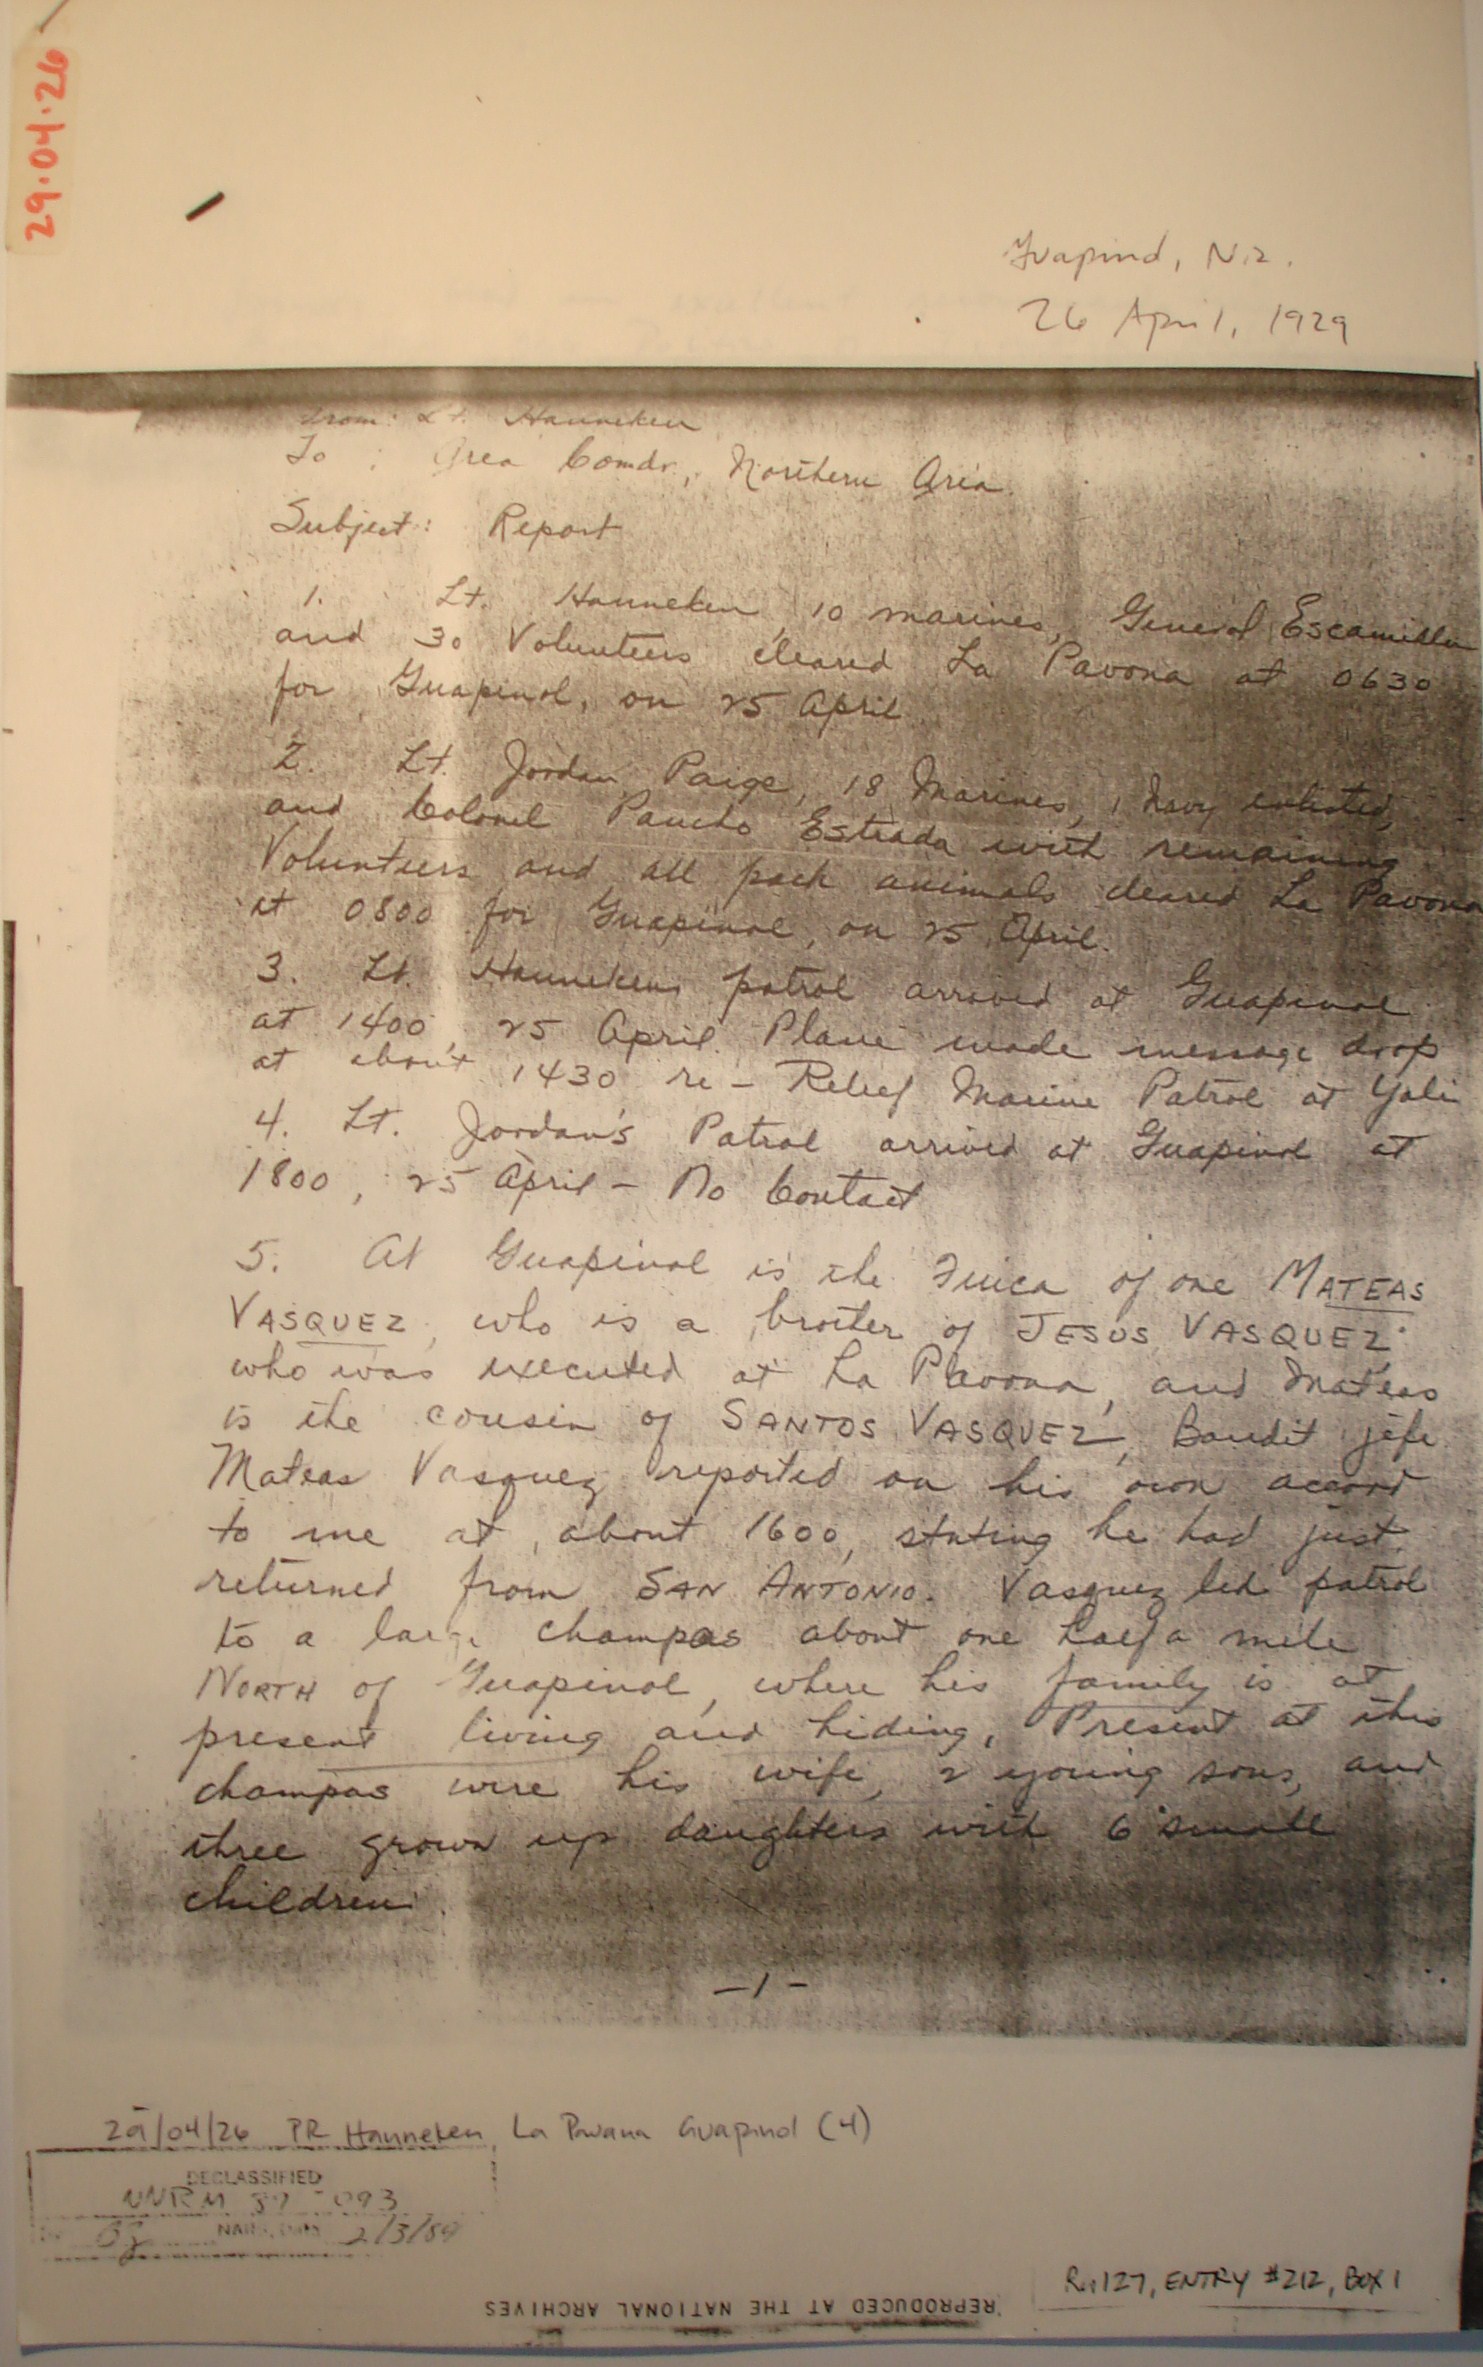 29.04.26
Guapinol, Nic.
26 April, 1929
From: Lt. Hanneken
To : Area Comdr., Northern Area.
Subject: Report
1. Lt. Hanneken, 10 marines, General Escamilla
and 30 Volunteers cleared La Pavona at 0630
for Guapinol, on 25 April
2. Lt. Jordan, Paige, 18 Marines, 1 Navy enlisted,
and Colonel Pancho Estrada with remaining
Volunteers and all pack animals cleared La Pavona
at 0800 for Guapinol, on 25 April.
3. Lt. Hannekens patrol arrived at Guapinol
at 1400, 25 April. Plane made message drop
at about 1430 re - Relief Marine Patrol at Yali
4. Lt. Jordan's Patrol arrived at Guapinol at
1800, 25 April - No Contact
5. At Guapinol is the Finca of one MATEAS
VASQUEZ, who is a broter of JESUS VASQUEZ
who was executed at La Pavona, and Mateas
is the cousin of SANTOS VASQUEZ, Bandit jefe.
Mateas Vasquez reported on his own accord
to me at about 1600, stating he had just
returned from SAN ANTONIO. Vasquez led patrol
to a large champas about one half a mile
NORTH of Guapinol, where his family is at
present living and hiding. Present at this
champas were his wife, 2 young sons, and
three grown up daughters with 6 small
children.
-1-
29/04/26 PR Hanneken, La Pavana Guapinol (4)
DECLASSIFIED
NNRM 893
2/3/89
RG127, ENTRY #212, BOX 1
REPRODUCED AT THE NATIONAL ARCHIVES